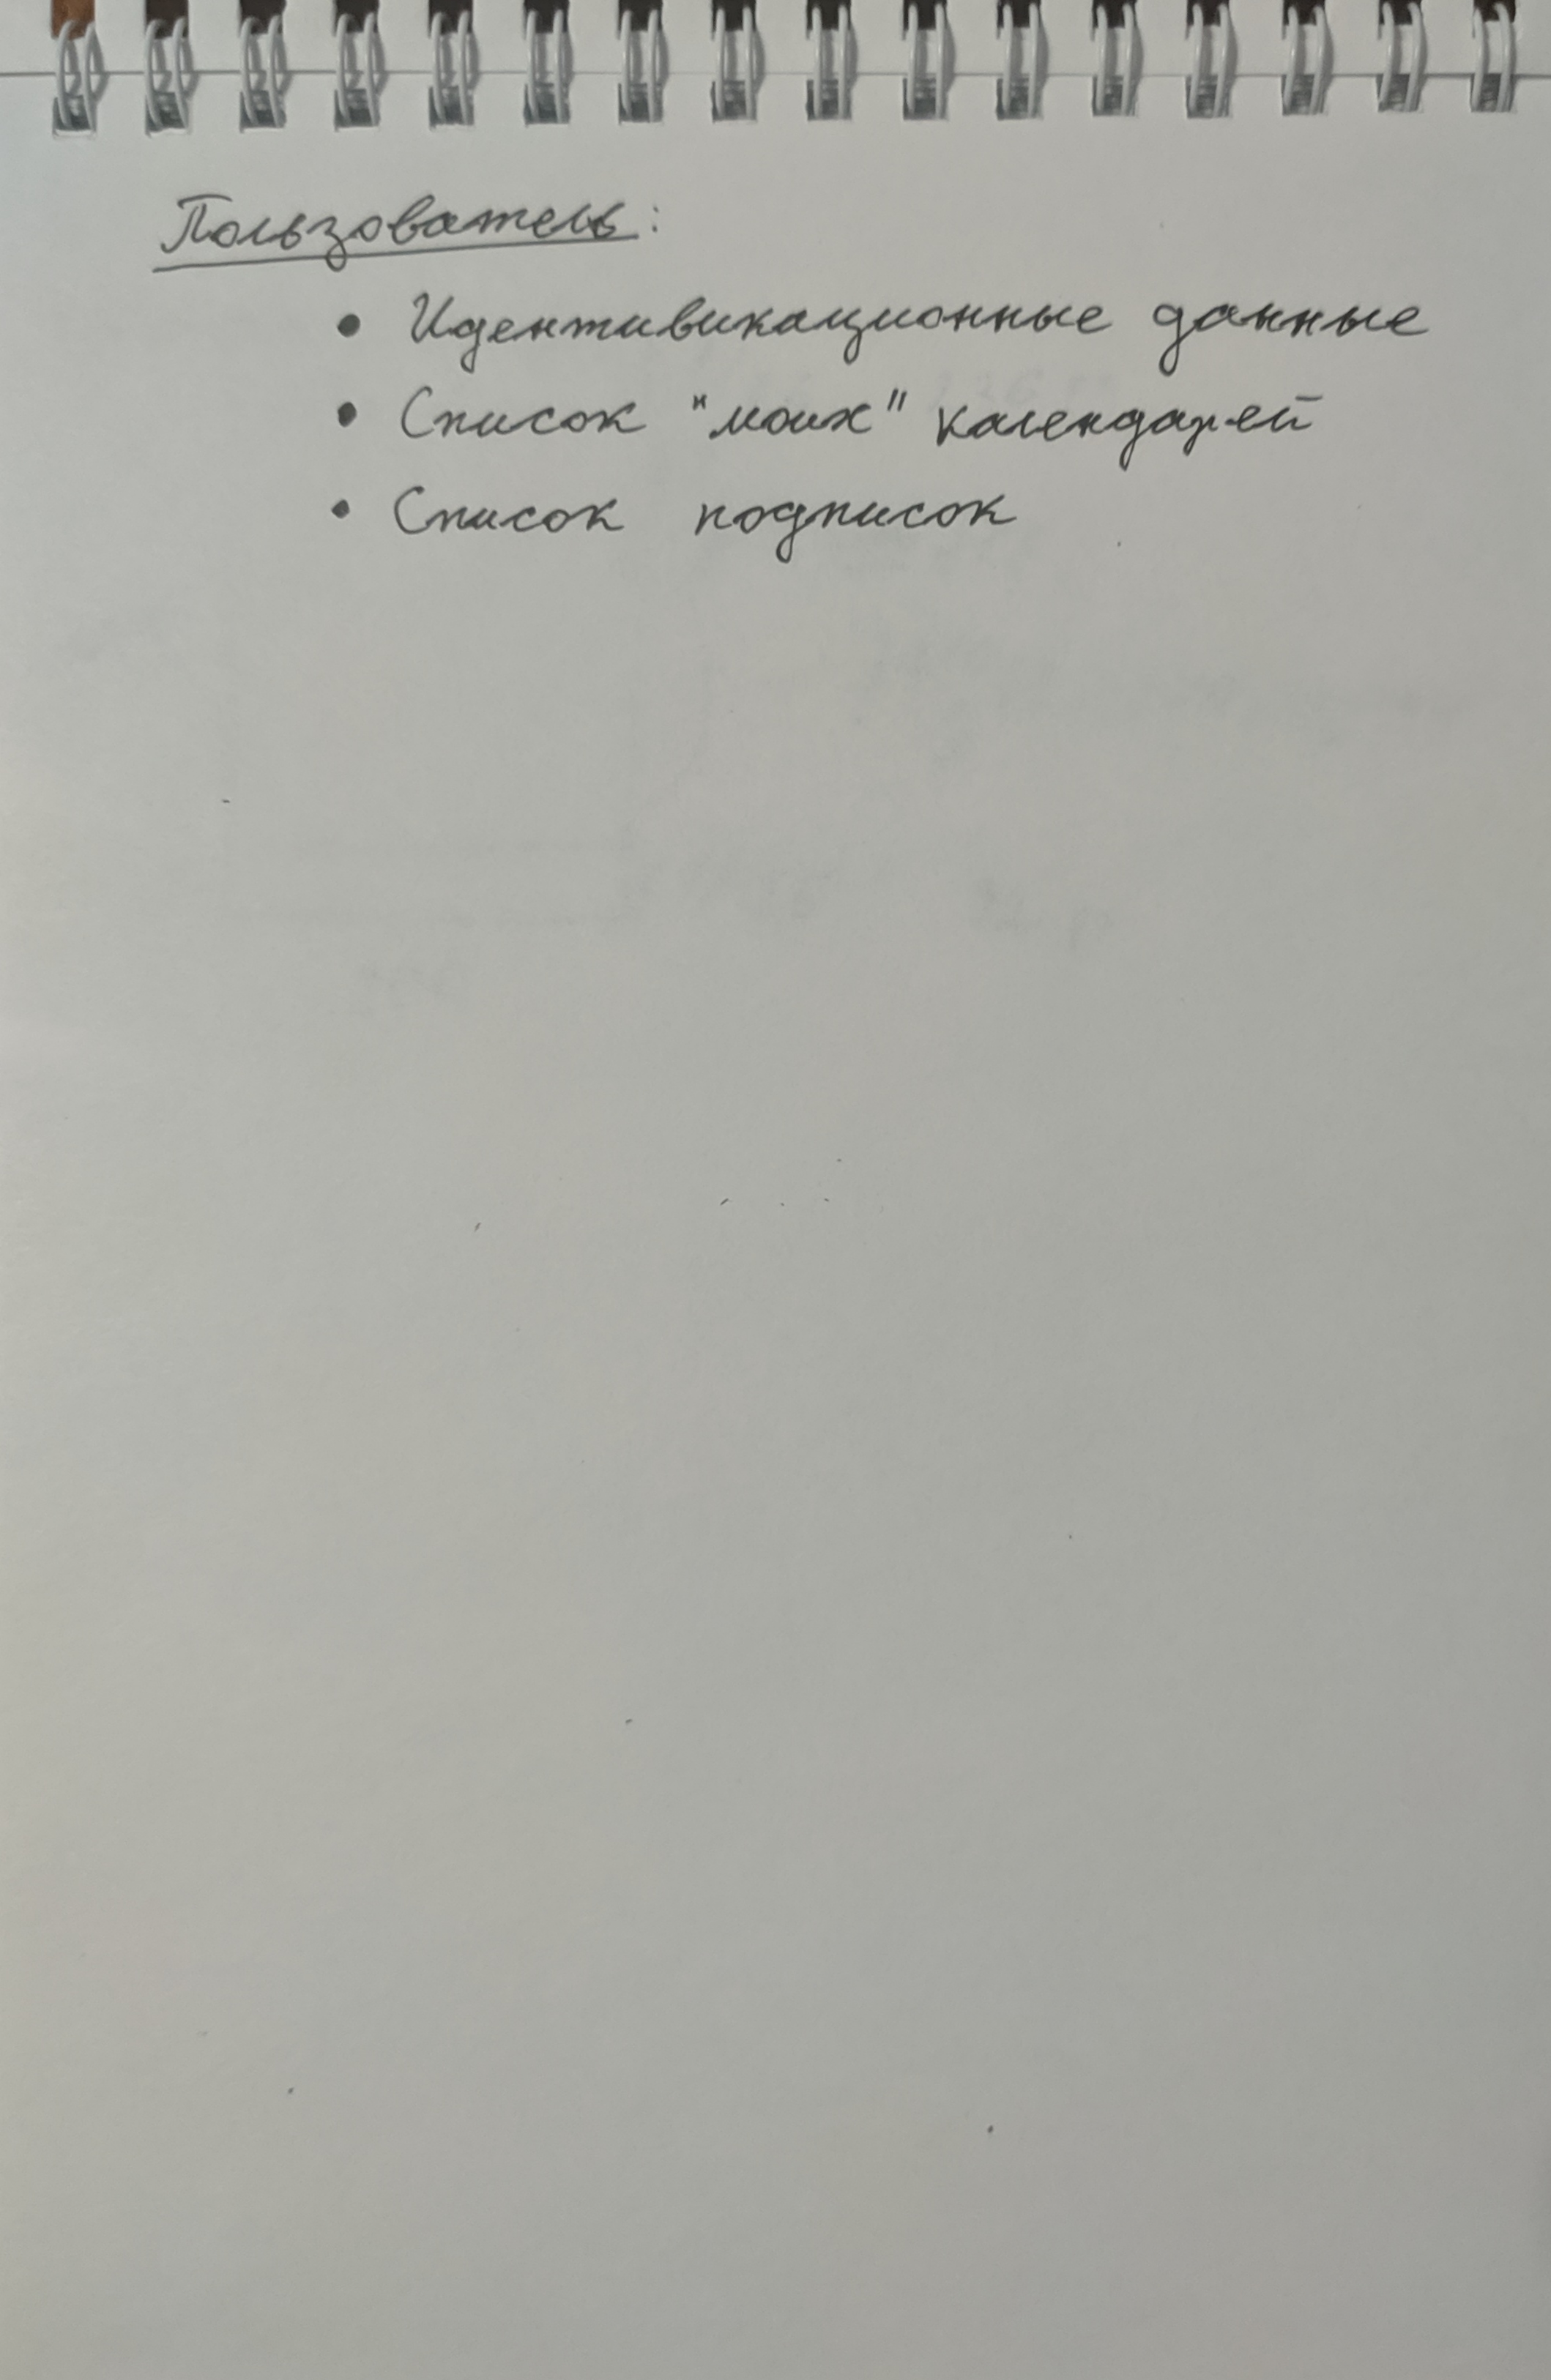 Пользователь:
• Идентивикационные данные
• Список "моих" календарей
• Список подписок